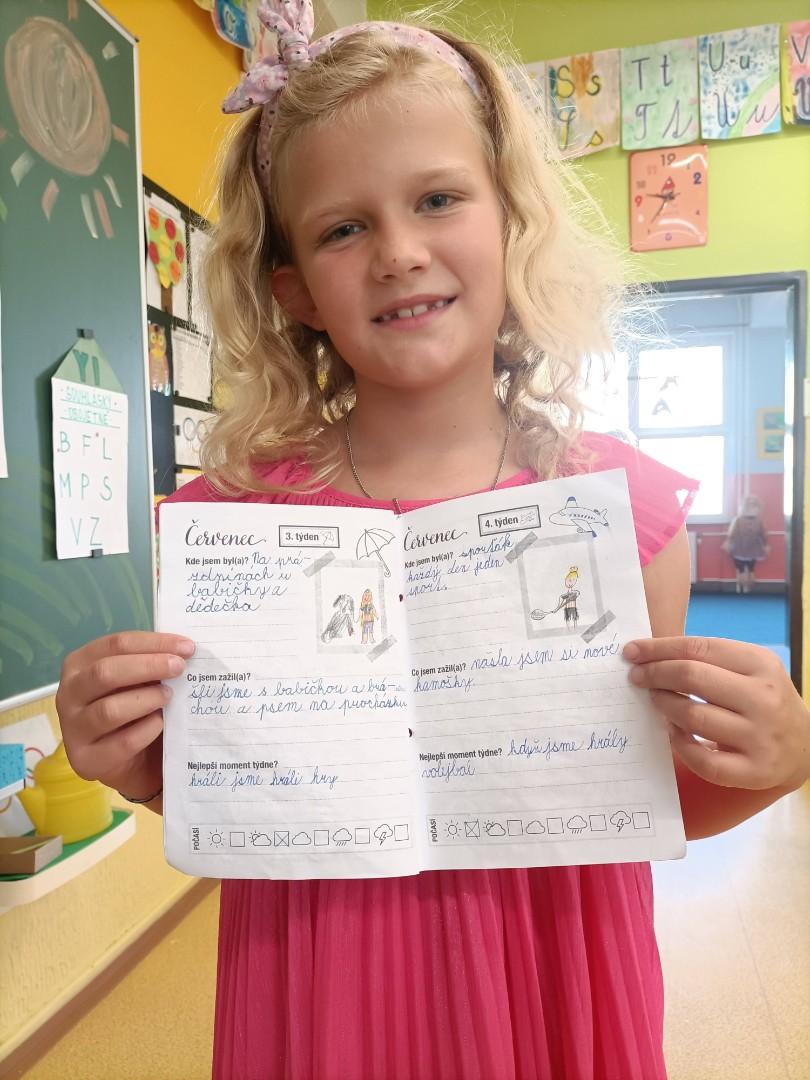 Ss
Tt
Uu
T t
U u
12
2
9
YI
SOUHLÁSKY
OBOJETNÉ
B F L
M P S
V Z
Červenec
3. týden
Kde jsem byl(a)? Na prá-
zdninách u
babičky a
dědečka
Co jsem zažil(a)?
šli jsme s babičkou a brá-
chou a psem na procházku
Nejlepší moment týdne?
hráli jsme hráli hry
POČASÍ
Červenec
4. týden
Kde jsem byl(a)? sporťák
každý den jeden
sport.
Co jsem zažil(a)? našla jsem si nové
kamošky
Nejlepší moment týdne? když jsme hrály
volejbal
POČASÍ